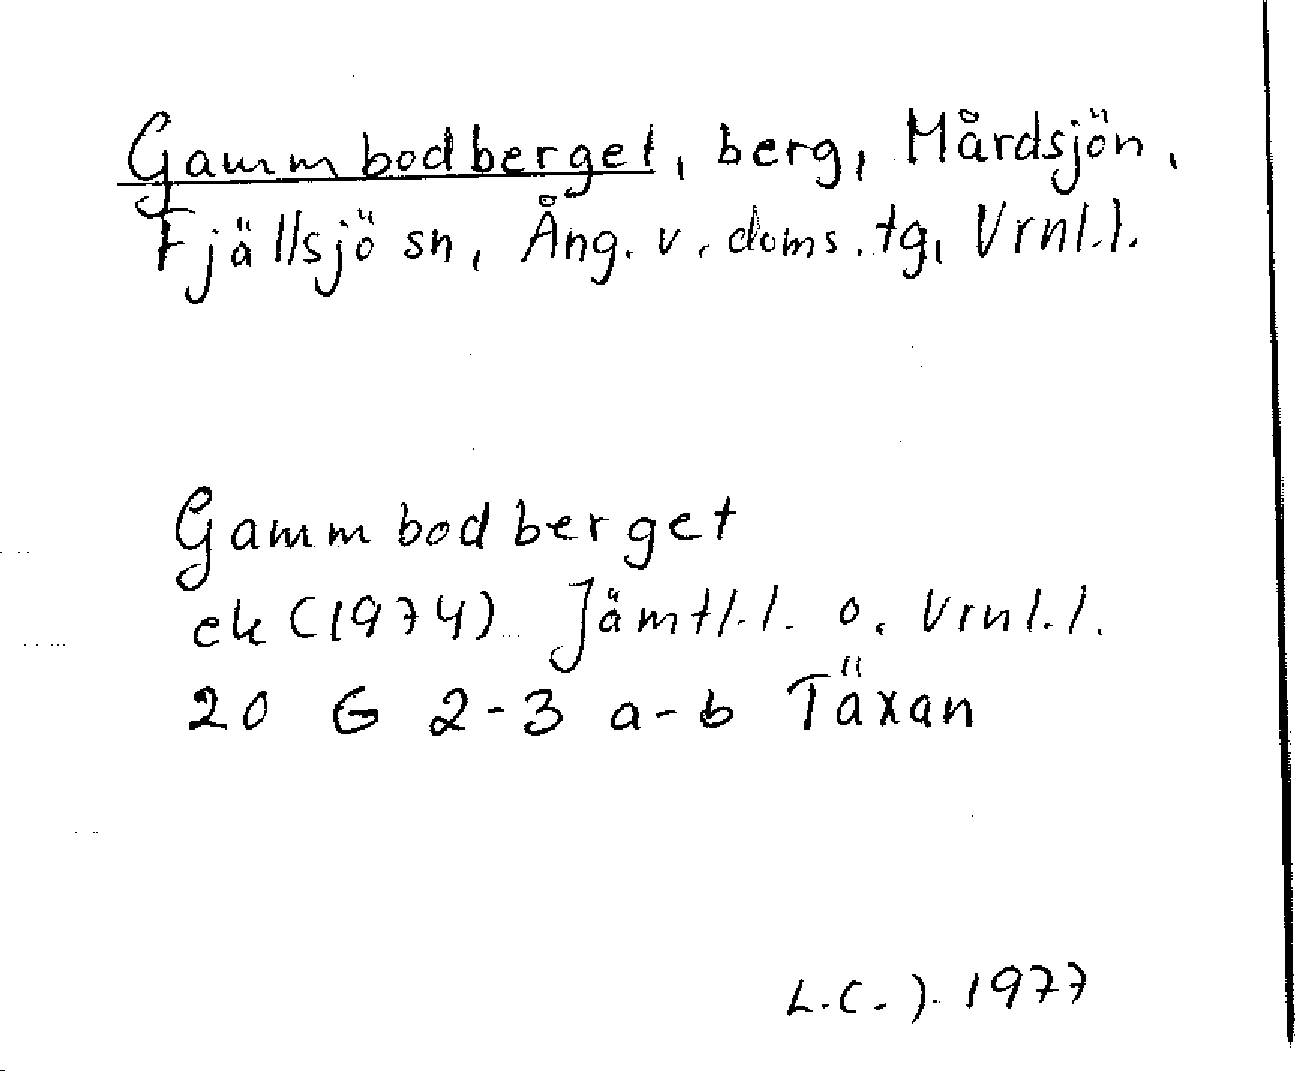 Gammbodberget, berg, Mårdsjön,
Fjällsjö sn, Ång. v. doms. tg, Vrnl.l.
Gammbodberget
ek (1974) Jämtl.l. o. Vrnl.l.
20 G 2-3 a-b Täxan
L.C.J. 1977